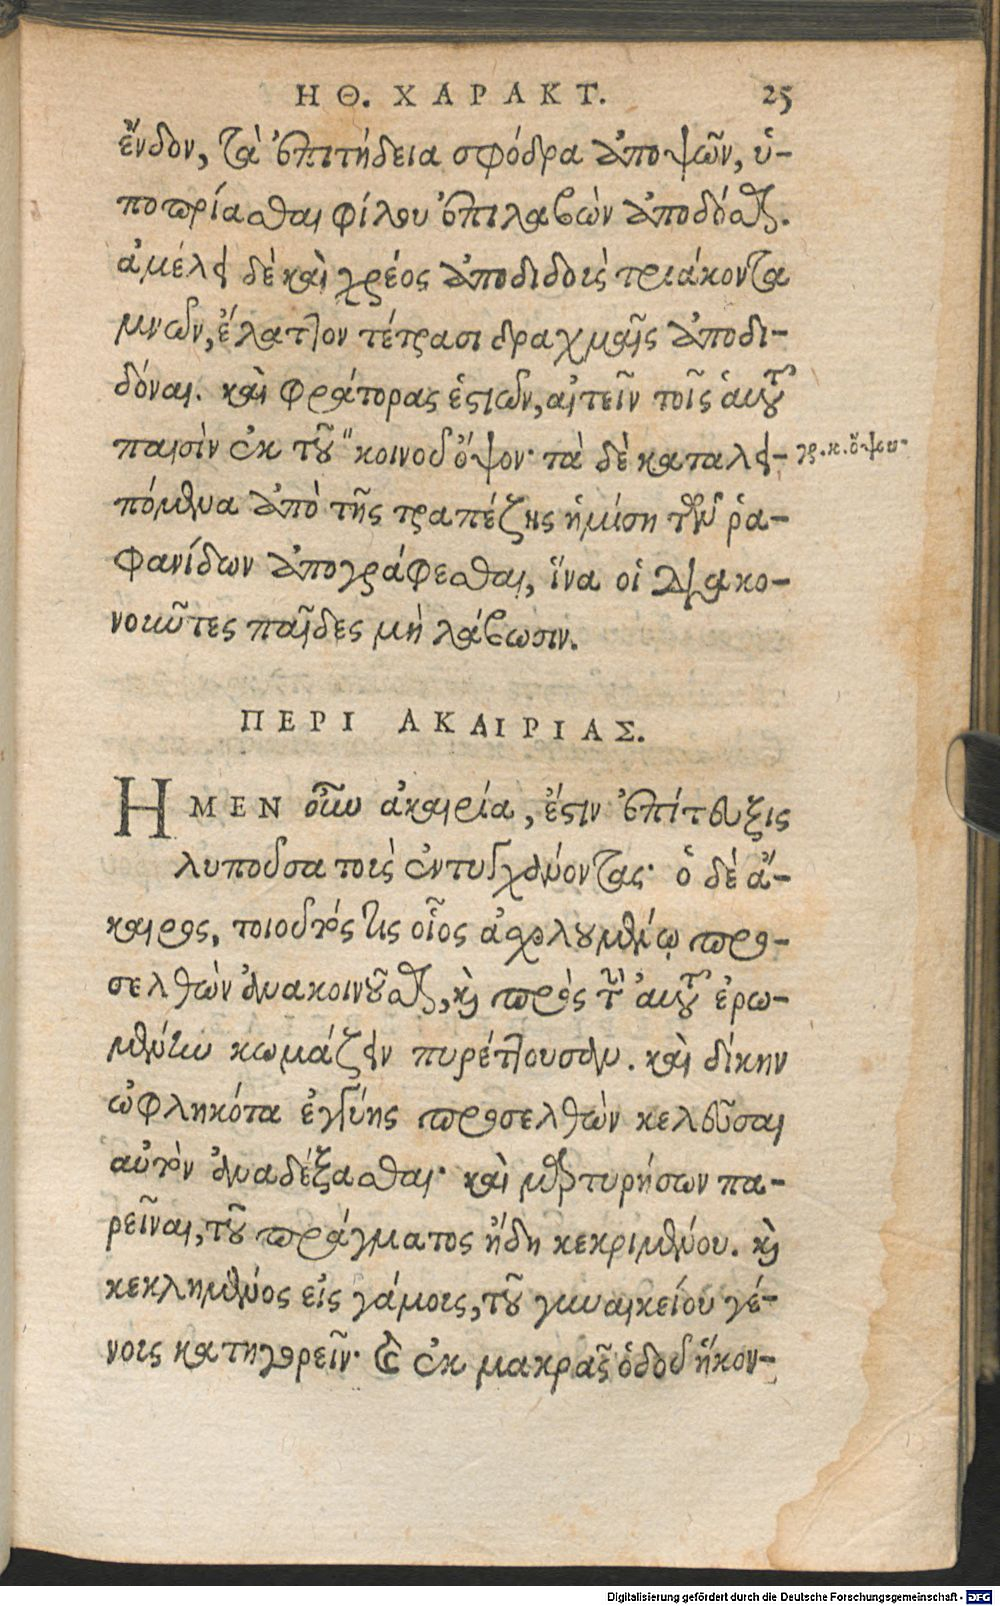 ΗΘ. ΧΑΡΑΚΤ. 25
ἔνδον, τὰ ἐπιτήδεια σφόδρα ἀποψῶν, ὑ-
ποπρίασθαι φίλου ἐπιλαβὼν ἀποδόσθαι.
ἀμέλει δὲ καὶ χρέος ἀποδιδοὺς τριάκοντα
μνῶν, ἔλαττον τέτρασι δραχμαῖς ἀποδι-
δόναι. καὶ φράτορας ἑστιῶν, αἰτεῖν τοῖς ἑαυτοῦ
παισὶν ἐκ τοῦ "κοινοῦ ὄψον· τὰ δὲ καταλει- γρ. κ. ὄψου·
πόμενα ἀπὸ τῆς τραπέζης ἡμίση τῶν ῥα-
φανίδων ἀπογράφεσθαι, ἵνα οἱ διακο-
νοῦντες παῖδες μὴ λάβωσιν.
ΠΕΡΙ ΑΚΑΙΡΙΑΣ.
Η ΜΕΝ οὖν ἀκαιρία, ἐστὶν ἐπίτευξις
λυποῦσα τοὺς ἐντυγχάνοντας· ὁ δὲ ἄ-
καιρος, τοιοῦτός τις οἷος ἀσχολουμένῳ προ-
σελθὼν ἀνακοινοῦσθαι, καὶ πρὸς τὴν αὑτοῦ ἐρω-
μένην κωμάζειν πυρέττουσαν. καὶ δίκην
ὠφληκότα ἐγγύης προσελθὼν κελεῦσαι
αὐτὸν ἀναδέξασθαι· καὶ μαρτυρήσων πα-
ρεῖναι, τοῦ πράγματος ἤδη κεκριμένου. καὶ
κεκλημένος εἰς γάμους, τοῦ γυναικείου γέ-
νους κατηγορεῖν· καὶ ἐκ μακρᾶς ὁδοῦ ἥκον-
Digitalisierung gefördert durch die Deutsche Forschungsgemeinschaft - DFG